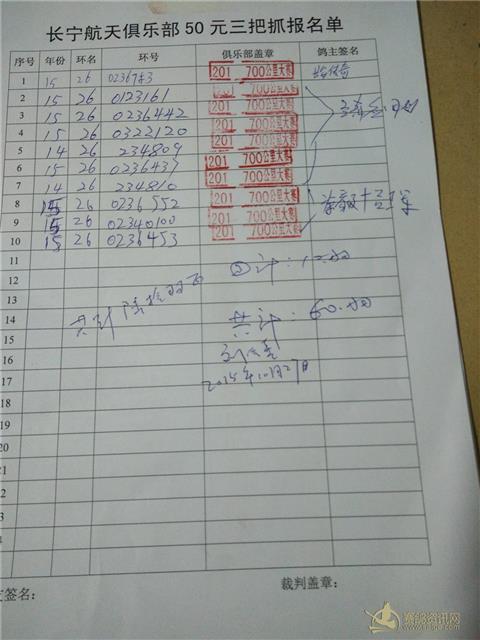 长宁航天俱乐部50元三把抓报名单
序号 年份 环名 环号 俱乐部盖章 鸽主签名
1 15 26 0236743 201 700公里大赛
2 15 26 0123161 201 700公里大赛
3 15 26 0236442 201 700公里大赛
4 15 26 0322120 201 700公里大赛
5 14 26 234809 201 700公里大赛
6 15 26 0236437 201 700公里大赛
7 14 26 234810 201 700公里大赛
8 15 26 0236552 201 700公里大赛
9 15 26 02340100 201 700公里大赛
10 15 26 0236453 201 700公里大赛
11
12
13
14 共计 共计:60.
15
16
17 2015年10月27日
18
19
20
21
22
23
24
25
签名: 裁判盖章:
赛鸽资讯网